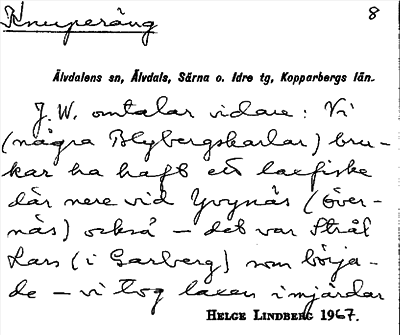 Knuperäng
8
Älvdalens sn, Älvdals, Särna o. Idre tg, Kopparbergs län.
J.W. omtalar vidare: Vi
(några Blybergskarlar) bru-
kar ha haft ett laxfiske
där nere vid Yvynäs (Över-
näs) också – det var Strål
Lars (i Garberg) som börja-
de – vi tog laxen i mjärdar
HELGE LINDBERG 1967.